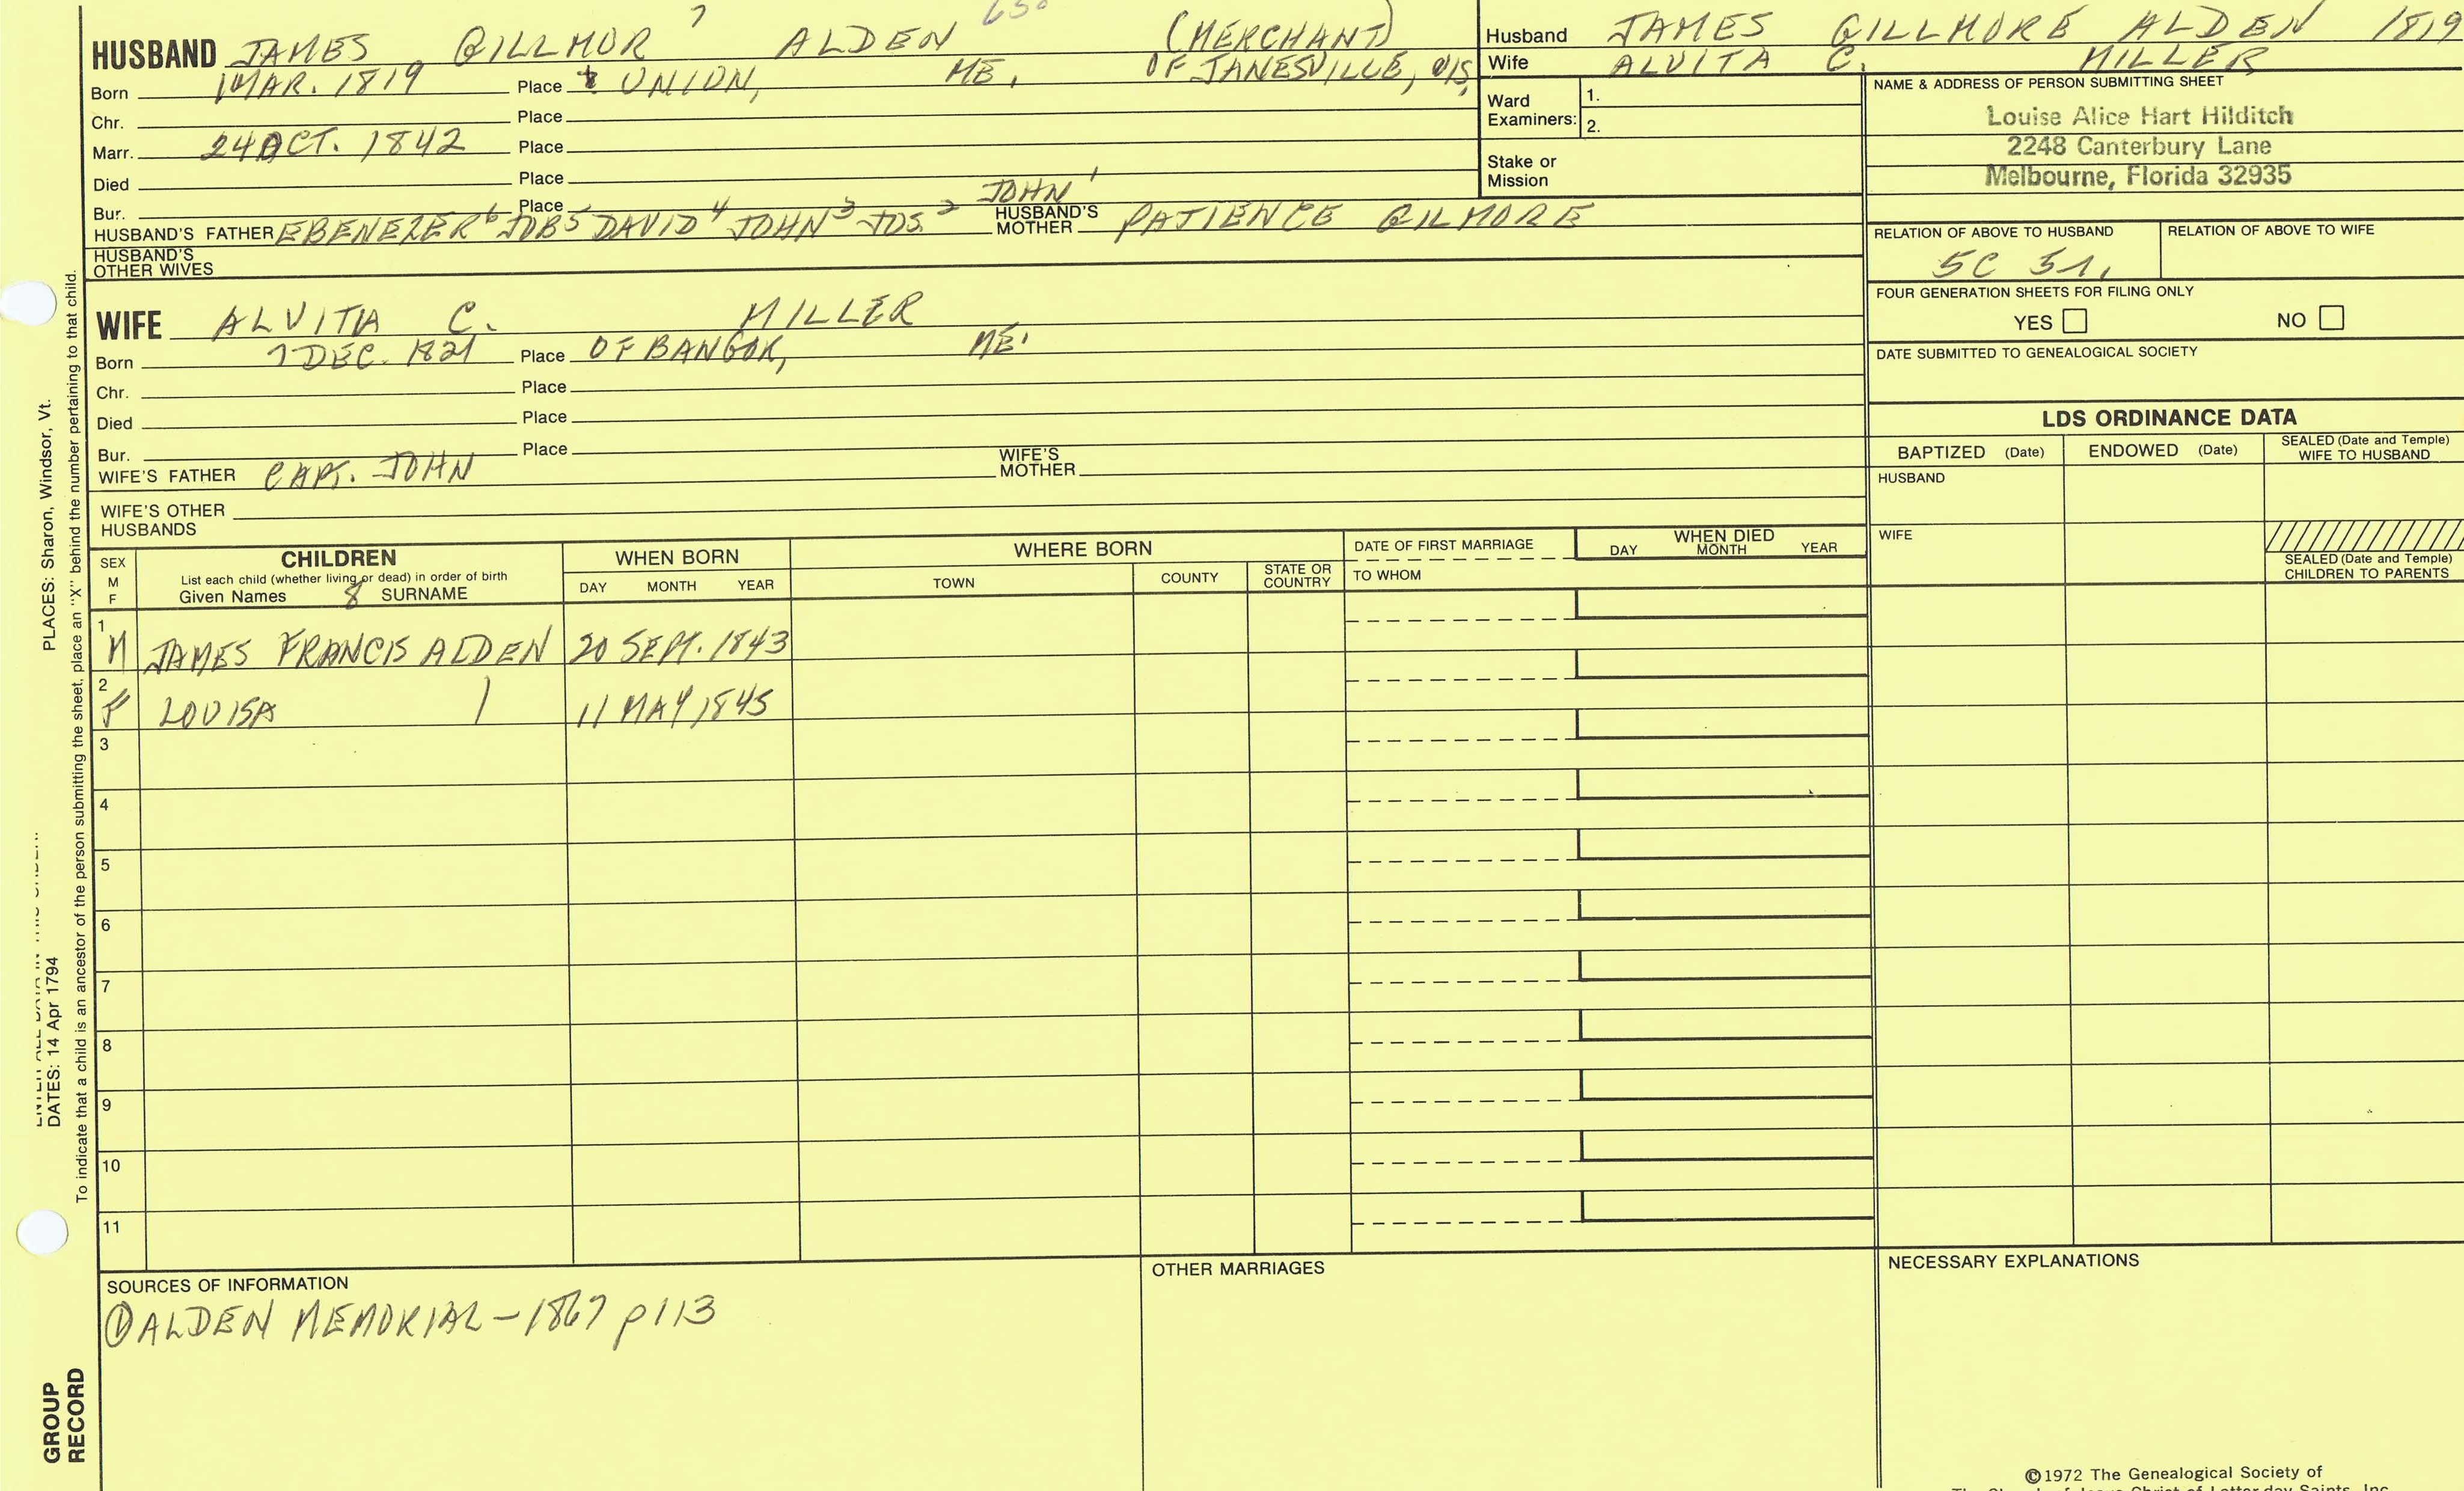 HUSBAND JAMES GILLMOR 7 ALDEN 650 (MERCHANT)
Born 1 MAR. 1819 Place UNION, ME. OF JANESVILLE, WIS.
Chr. Place
Marr. 24 OCT. 1842 Place
Died Place
Bur. Place
HUSBAND'S FATHER EBENEZER 6 JOB 5 DAVID 4 JOHN 3 JOS. 2 JOHN 1 HUSBAND'S MOTHER PATIENCE GILMORE
HUSBAND'S OTHER WIVES
Husband JAMES GILLMORE ALDEN 1819
Wife ALVITA C. MILLER
Ward Examiners: 1.
2.
Stake or Mission
NAME & ADDRESS OF PERSON SUBMITTING SHEET
Louise Alice Hart Hilditch
2248 Canterbury Lane
Melbourne, Florida 32935
RELATION OF ABOVE TO HUSBAND RELATION OF ABOVE TO WIFE
5C
FOUR GENERATION SHEETS FOR FILING ONLY
YES NO
DATE SUBMITTED TO GENEALOGICAL SOCIETY
WIFE ALVITA C. MILLER
Born 7 DEC. 1821 Place OF BANGOR, ME.
Chr. Place
Died Place
Bur. Place
WIFE'S FATHER CAPT. JOHN WIFE'S MOTHER
WIFE'S OTHER HUSBANDS
LDS ORDINANCE DATA
BAPTIZED (Date) ENDOWED (Date) SEALED (Date and Temple) WIFE TO HUSBAND
HUSBAND
WIFE
SEALED (Date and Temple) CHILDREN TO PARENTS
SEX M F CHILDREN WHEN BORN WHERE BORN DATE OF FIRST MARRIAGE WHEN DIED
List each child (whether living or dead) in order of birth
Given Names 8 SURNAME DAY MONTH YEAR TOWN COUNTY STATE OR COUNTRY TO WHOM DAY MONTH YEAR
1 M JAMES FRANCIS ALDEN 20 SEPT. 1843
2 F LOUISA 11 MAY 1845
3
4
5
6
7
8
9
10
11
SOURCES OF INFORMATION
① ALDEN MEMORIAL - 1867 p113
OTHER MARRIAGES
NECESSARY EXPLANATIONS
©1972 The Genealogical Society of
The Church of Jesus Christ of Latter-day Saints, Inc.
PLACES: Sharon, Windsor, Vt.
DATES: 14 Apr 1794
To indicate that a child is an ancestor of the person submitting the sheet, place an "X" behind the number pertaining to that child.
GROUP RECORD